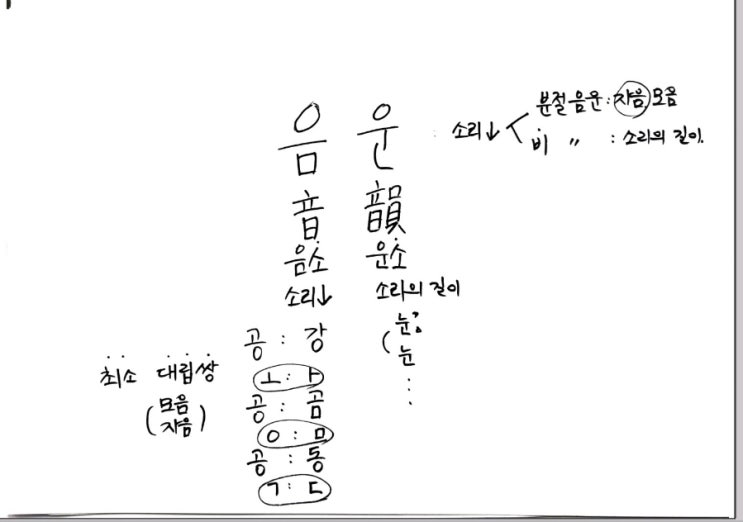 음 운
音 韻
음소 운소
소리↓ 소리의 길이
소리↓ < 분절음운 : 자음, 모음
비 〃 : 소리의 길이.
공 : 강
ㅗ : ㅏ
공 : 곰
ㅇ : ㅁ
공 : 동
ㄱ : ㄷ
최소 대립쌍
(모음
자음)
(눈:
눈
: